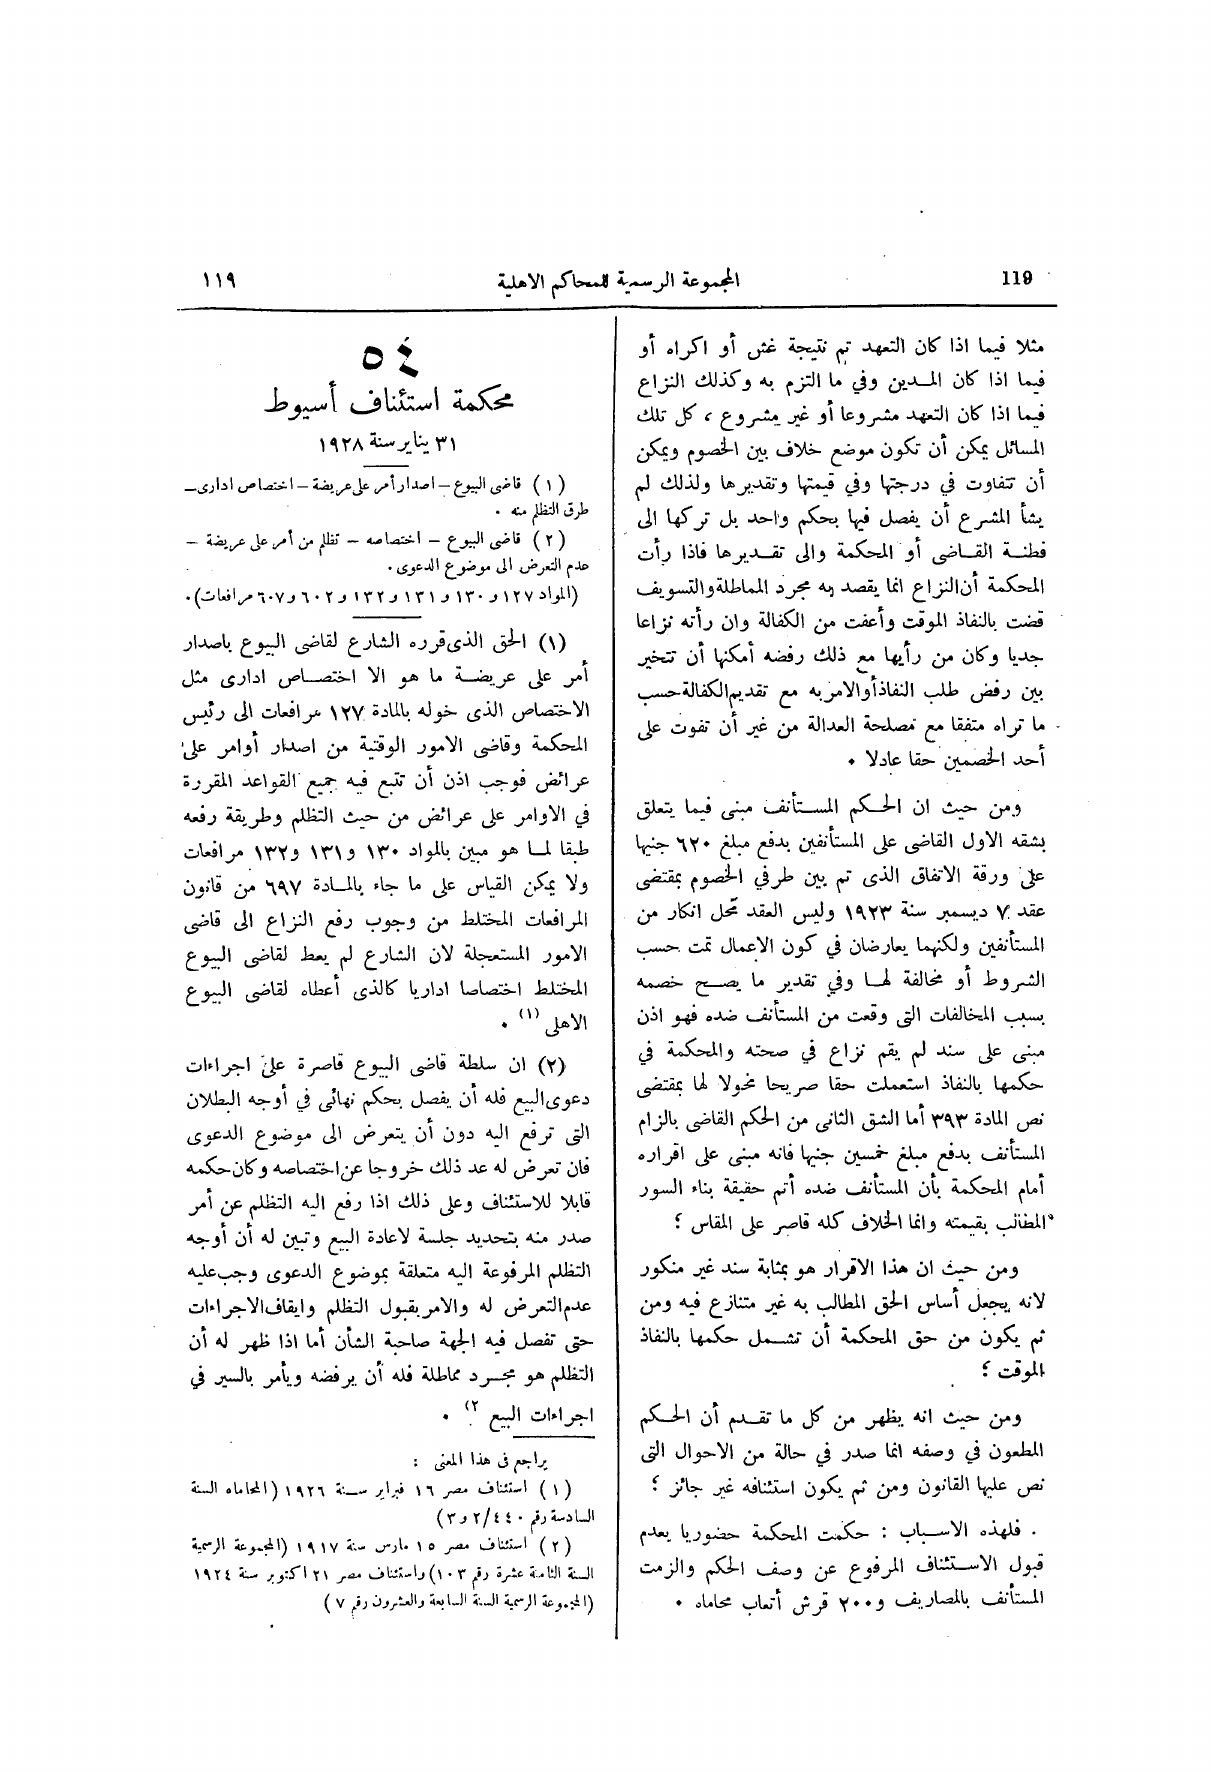 119 المجموعة الرسمية للمحاكم الاهلية ١١٩
مثلا فيما اذا كان التعهد تم نتيجة غش أو اكراه أو
فيما اذا كان المدين وفي ما التزم به وكذلك النزاع
فيما اذا كان التعهد مشروعا أو غير مشروع ، كل تلك
المسائل يمكن أن تكون موضع خلاف بين الخصوم ويمكن
أن تتفاوت في درجتها وفي قيمتها وتقديرها ولذلك لم
يشأ المشرع أن يفصل فيها بحكم واحد بل تركها الى
فطنة القاضى أو المحكمة والى تقديرها فاذا رأت
المحكمة أن النزاع انما يقصد به مجرد المماطلة والتسويف
قضت بالنفاذ الموقت وأعفت من الكفالة وان رأته نزاعا
جديا وكان من رأيها مع ذلك رفضه أمكنها أن تتخير
بين رفض طلب النفاذ أو الامر به مع تقديم الكفالة حسب
ما تراه متفقا مع مصلحة العدالة من غير أن تفوت على
أحد الخصمين حقا عادلا .
ومن حيث ان الحكم المستأنف مبنى فيما يتعلق
بشقه الاول القاضى على المستأنفين بدفع مبلغ ٦٢٠ جنيها
على ورقة الاتفاق الذى تم بين طرفي الخصوم بمقتضى
عقد ٧ ديسمبر سنة ١٩٢٣ وليس العقد محل انكار من
المستأنفين ولكنهما يعارضان في كون الاعمال تمت حسب
الشروط أو مخالفة لها وفي تقدير ما يصح خصمه
بسبب المخالفات التى وقعت من المستأنف ضده فهو اذن
مبنى على سند لم يقم نزاع في صحته والمحكمة في
حكمها بالنفاذ استعملت حقا صريحا مخولا لها بمقتضى
نص المادة ٣٩٣ أما الشق الثانى من الحكم القاضى بالزام
المستأنف بدفع مبلغ خمسين جنيها فانه مبنى على اقراره
أمام المحكمة بأن المستأنف ضده أتم حقيقة بناء السور
المطالب بقيمته وانما الخلاف كله قاصر على المقاس ؛
ومن حيث ان هذا الاقرار هو بمثابة سند غير منكور
لانه يجعل أساس الحق المطالب به غير متنازع فيه ومن
ثم يكون من حق المحكمة أن تشمل حكمها بالنفاذ
الموقت ؛
ومن حيث انه يظهر من كل ما تقدم أن الحكم
المطعون في وصفه انما صدر في حالة من الاحوال التى
نص عليها القانون ومن ثم يكون استئنافه غير جائز ؛
فلهذه الاسباب : حكمت المحكمة حضوريا بعدم
قبول الاستئناف المرفوع عن وصف الحكم والزمت
المستأنف بالمصاريف و٢٠٠ قرش أتعاب محاماه .
٥٤
محكمة استئناف أسيوط
٣١ يناير سنة ١٩٢٨
(١) قاضى البيوع – اصدار أمر على عريضة – اختصاص ادارى –
طرق التظلم منه .
(٢) قاضى البيوع – اختصاصه – تظلم من أمر على عريضة –
عدم التعرض الى موضوع الدعوى .
(المواد ١٢٧ و ١٣٠ و ١٣١ و ١٣٢ و ٦٠٢ و ٦٠٧ مرافعات) .
(١) الحق الذى قرره الشارع لقاضى البيوع باصدار
أمر على عريضة ما هو الا اختصاص ادارى مثل
الاختصاص الذى خوله بالمادة ١٢٧ مرافعات الى رئيس
المحكمة وقاضى الامور الوقتية من اصدار أوامر على
عرائض فوجب اذن أن تتبع فيه جميع القواعد المقررة
في الاوامر على عرائض من حيث التظلم وطريقة رفعه
طبقا لما هو مبين بالمواد ١٣٠ و١٣١ و١٣٢ مرافعات
ولا يمكن القياس على ما جاء بالمادة ٦٩٧ من قانون
المرافعات المختلط من وجوب رفع النزاع الى قاضى
الامور المستعجلة لان الشارع لم يعط لقاضى البيوع
المختلط اختصاصا اداريا كالذى أعطاه لقاضى البيوع
الاهلى (١) .
(٢) ان سلطة قاضى البيوع قاصرة على اجراءات
دعوى البيع فله أن يفصل بحكم نهائى في أوجه البطلان
التى ترفع اليه دون أن يتعرض الى موضوع الدعوى
فان تعرض له عد ذلك خروجا عن اختصاصه وكان حكمه
قابلا للاستئناف وعلى ذلك اذا رفع اليه التظلم عن أمر
صدر منه بتحديد جلسة لاعادة البيع وتبين له أن أوجه
التظلم المرفوعة اليه متعلقة بموضوع الدعوى وجب عليه
عدم التعرض له والامر بقبول التظلم وايقاف الاجراءات
حتى تفصل فيه الجهة صاحبة الشأن أما اذا ظهر له أن
التظلم هو مجرد مماطلة فله أن يرفضه ويأمر بالسير في
اجراءات البيع (٢) .
يراجع فى هذا المعنى :
(١) استئناف مصر ١٦ فبراير سنة ١٩٢٦ (المحاماه السنة
السادسة رقم ٢/٤٤٠ و ٣)
(٢) استئناف مصر ١٥ مارس سنة ١٩١٧ (المجموعة الرسمية
السنة الثامنة عشرة رقم ١٠٣) واستئناف مصر ٢١ اكتوبر سنة ١٩٢٤
(المجموعة الرسمية السنة السابعة والعشرون رقم ٧)